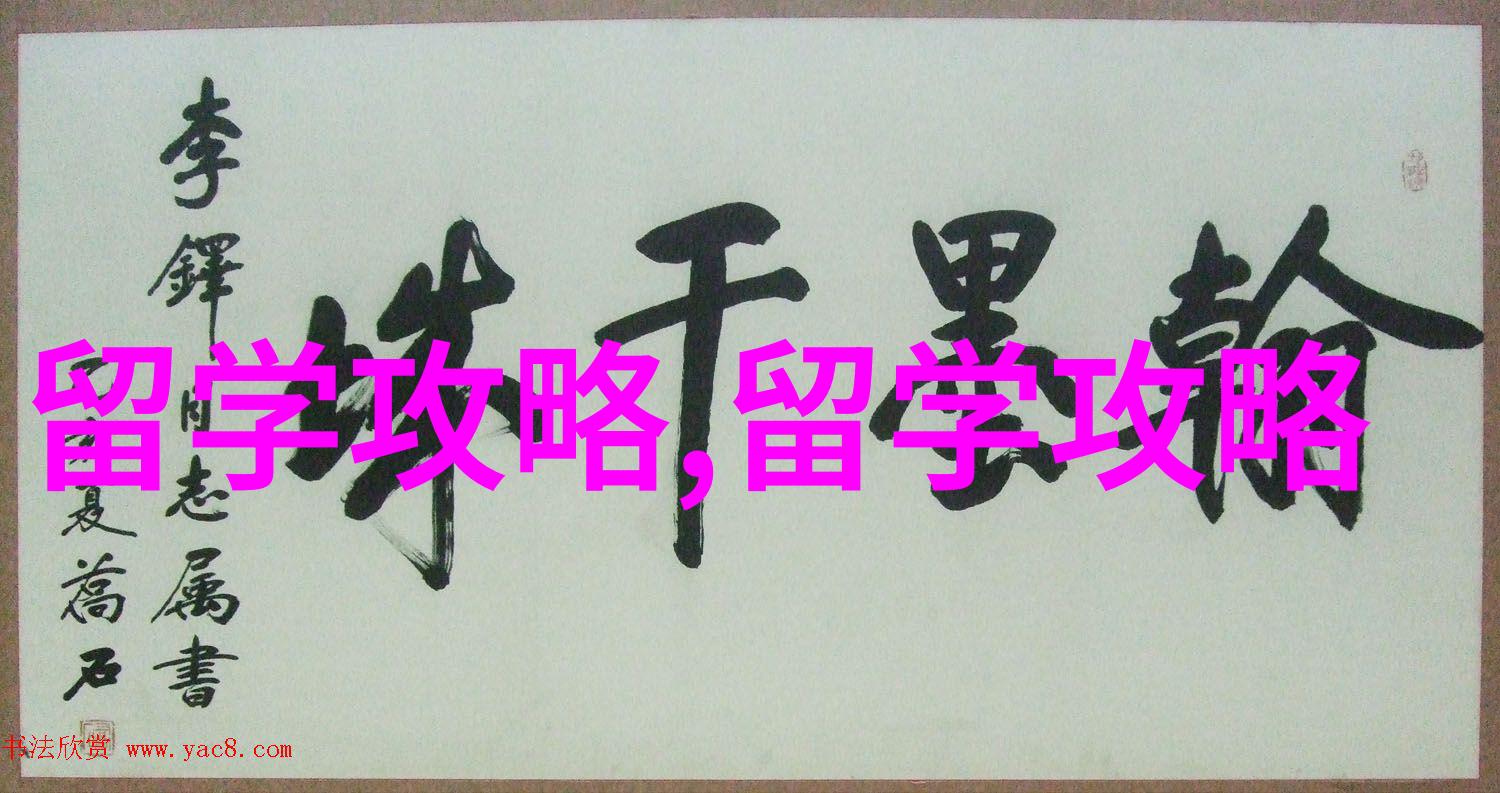 翰墨千秋
李鐸同志属書
夏喬石
留学攻略,留学攻略
书法欣赏 www.yac8.com